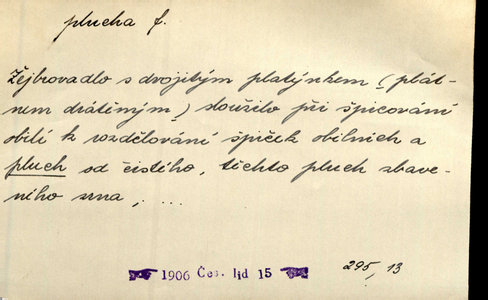 plucha f.
Žejbrovadlo s dvojitým platýnkem (plát-
nem drátěným) sloužilo při špicování
obilí k rozdělování špiček obilních a
pluch od čistého, těchto pluch zbave-
ného zrna, ...
1906 Čes. lid 15
295, 13